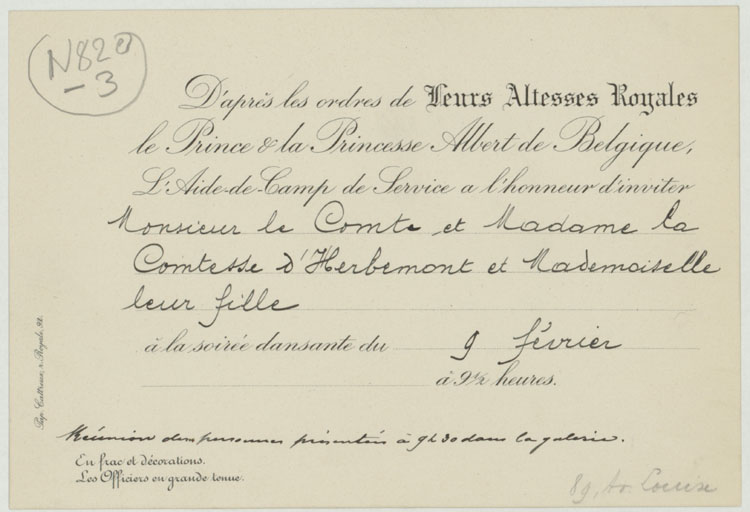 N82
-3
D'après les ordres de Leurs Altesses Royales
le Prince & la Princesse Albert de Belgique,
L'Aide-de-Camp de Service a l'honneur d'inviter
Monsieur le Comte et Madame la
Comtesse d'Herbemont et Mademoiselle
leur fille
à la soirée dansante du 9 février
à 9 1/2 heures.
Réunion des personnes présentées à 9h30 dans la galerie.
En frac et décorations.
Les Officiers en grande tenue.
89, Av. Louise
Pap. Cattreux, r. Royale, 92.